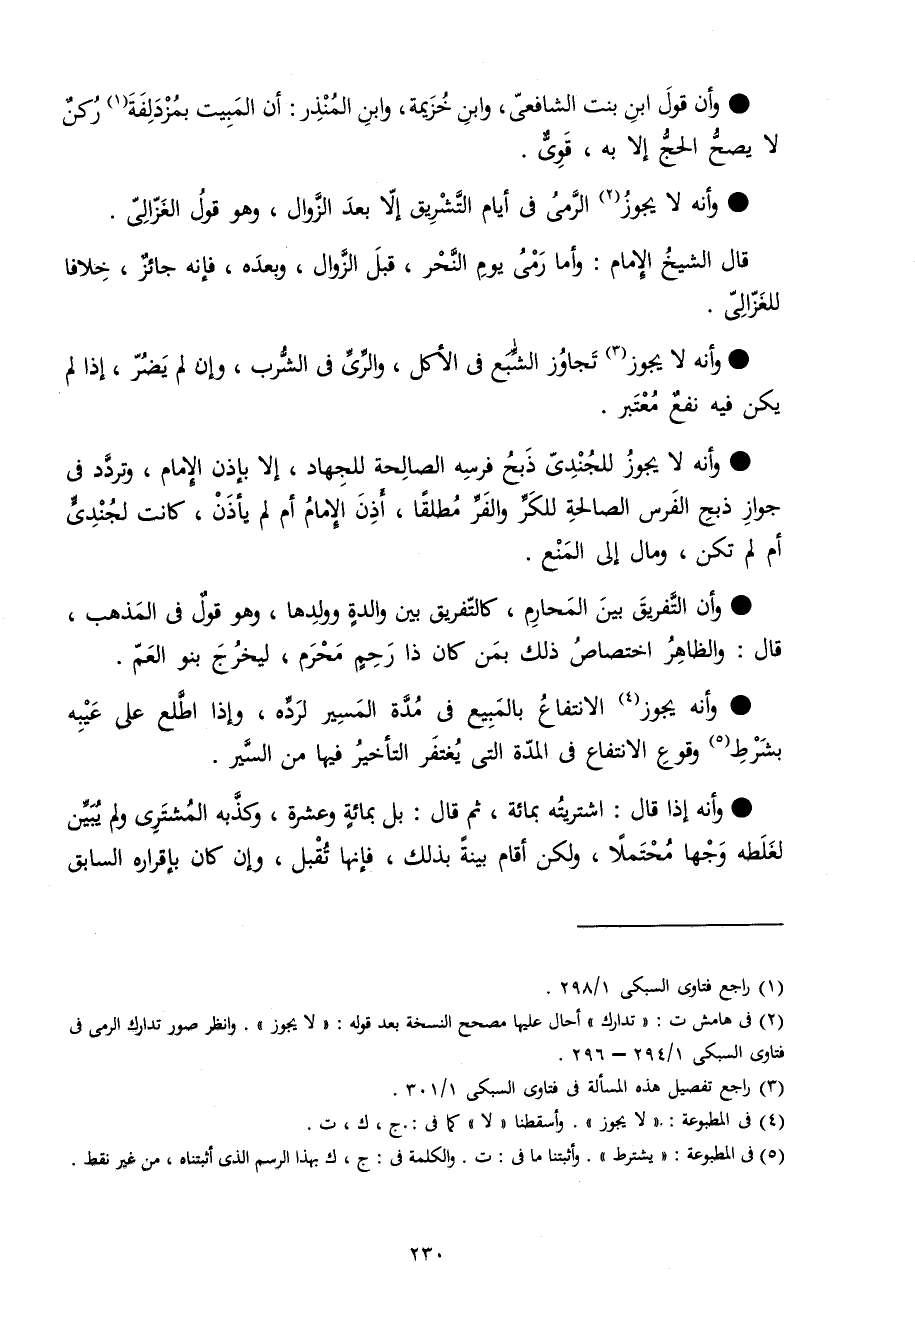 ● وأن قولَ ابنِ بنت الشافعىّ، وابنِ خُزَيمة، وابنِ المُنْذِر : أن المَبِيت بمُزْدَلِفَةَ(١) رُكنٌ
لا يصحُّ الحجُّ إلا به ، قَوِىٌّ .
● وأنه لا يجوزُ(٢) الرَّمىُ فى أيام التَّشْرِيق إلّا بعدَ الزَّوال ، وهو قولُ الغَزّالِىّ .
قال الشيخُ الإمام : وأما رَمْىُ يومِ النَّحْر ، قبلَ الزَّوال ، وبعدَه ، فإنه جائزٌ ، خِلافا
للغَزّالِىّ .
● وأنه لا يجوز(٣) تَجاوُز الشِّبَع فى الأكل ، والرِّىِّ فى الشُّرب ، وإن لم يَضُرّ ، إذا لم
يكن فيه نفعٌ مُعْتَبر .
● وأنه لا يجوزُ للجُنْدِىّ ذَبحُ فرسِه الصالِحة للجِهاد ، إلا بإذن الإمام ، وتردَّد فى
جوازِ ذبحِ الفَرس الصالحةِ للكَرِّ والفَرِّ مُطلقًا ، أَذِنَ الإِمامُ أم لم يأذَنْ ، كانت لجُنْدِىٍّ
أم لم تكن ، ومال إلى المَنْع .
● وأن التَّفريقَ بينَ المَحارِم ، كالتّفريق بين والدةٍ وولدِها ، وهو قولٌ فى المَذهب ،
قال : والظاهِرُ اختصاصُ ذلك بمَن كان ذا رَحِمٍ مَحْرَم ، ليخرُجَ بنو العَمّ .
● وأنه يجوز(٤) الانتفاعُ بالمَبِيع فى مُدَّة المَسِير لرَدِّه ، وإذا اطَّلع على عَيْبِه
بشَرْطِ(٥) وقوعِ الانتفاع فى المدّة التى يُغتفَر التأخيرُ فيها من السَّير .
● وأنه إذا قال : اشتريتُه بمائة ، ثم قال : بل بمائةٍ وعشرة ، وكذَّبه المُشتَرِى ولم يُبَيِّن
لغَلَطه وَجْها مُحْتَملًا ، ولكن أقام بينةً بذلك ، فإنها تُقْبل ، وإن كان بإقراره السابق
(١) راجع فتاوى السبكى ٢٩٨/١ .
(٢) فى هامش ت : « تدارك » أحال عليها مصحح النسخة بعد قوله : « لا يجوز » . وانظر صور تدارك الرمى فى
فتاوى السبكى ٢٩٤/١ – ٢٩٦ .
(٣) راجع تفصيل هذه المسألة فى فتاوى السبكى ٣٠١/١ .
(٤) فى المطبوعة : « لا يجوز » . وأسقطنا « لا » كما فى : ج ، ك ، ت .
(٥) فى المطبوعة : « يشترط » . وأثبتنا ما فى : ت . والكلمة فى : ج ، ك بهذا الرسم الذى أثبتناه ، من غير نقط .
٢٣٠